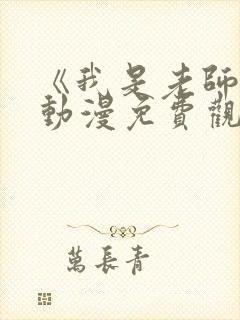 《我是老師
動漫免費觀
萬長青